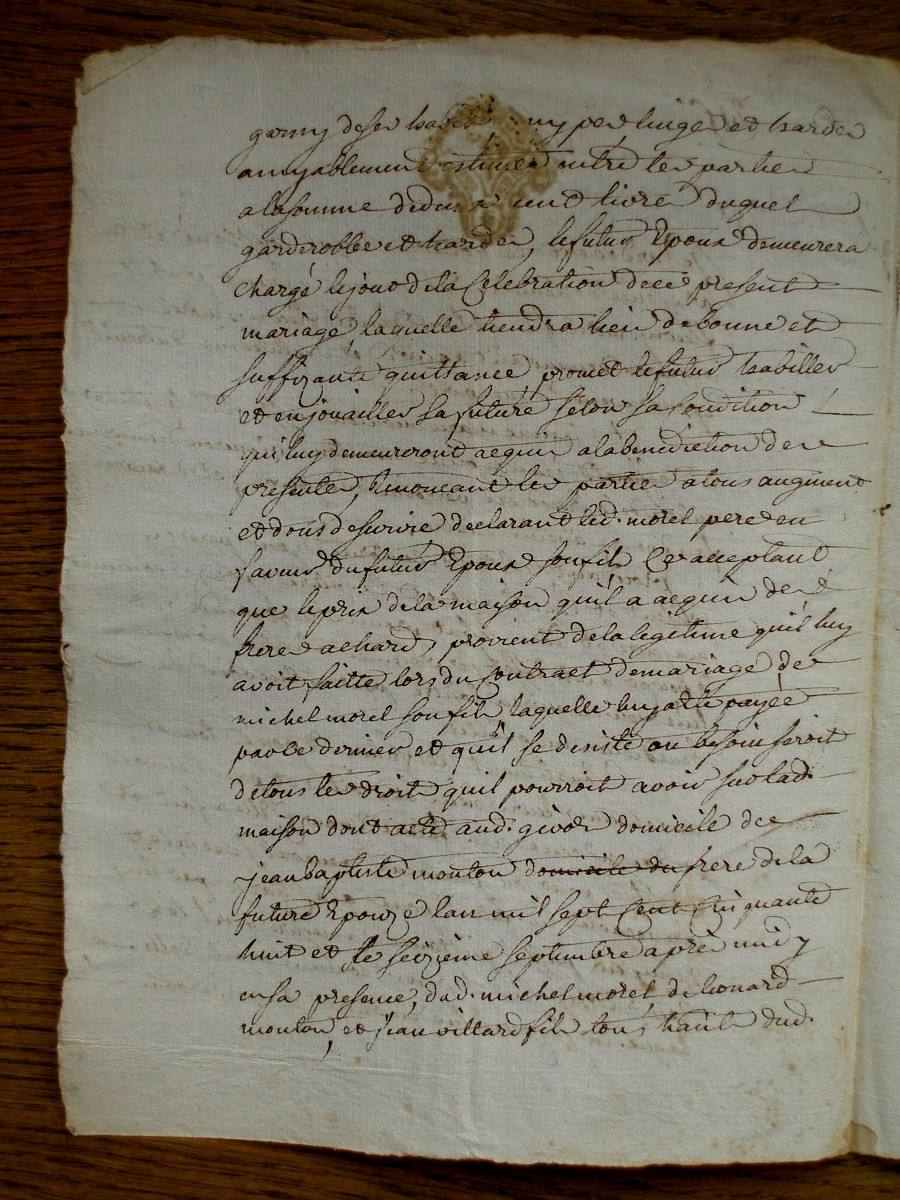 garny de ses habits linges et hardes
amyablement estimée entre les parties
a la somme de deux cent livres duquel
garderobbe et hardes, le futur Epoux demeurera
chargé le jour de la Celebration de ce present
mariage, laquelle tiendra lieu de bonne et
suffizante quittance, promet le futur habiller
et enjoailler sa future selon sa Condition
qui luy demeureront acquis a la benediction des
presentes, Renonceant les parties a tous augment
et dons de survie declarant led. morel pere en
faveur du futur Epoux son fils Ce acceptant
que le prix de la maison qu'il a acquis des
freres achard, provient de la legitime qu'il luy
avoit faitte lors du Contract de mariage de
michel morel son fils, laquelle luy a été payée
par ce dernier et qu'il se desiste au besoin seroit
de tous les droits qu'il pourroit avoir sur lad.
maison dont acte aud. givors domicile de
jean baptiste mouton domicile du frere de la
future Epouze l'an mil sept Cent Cinquante
huit et le seizième septembre après midy
en sa presence, dud. michel morel, de leonard
mouton, et jean villard fils tous haule dud.